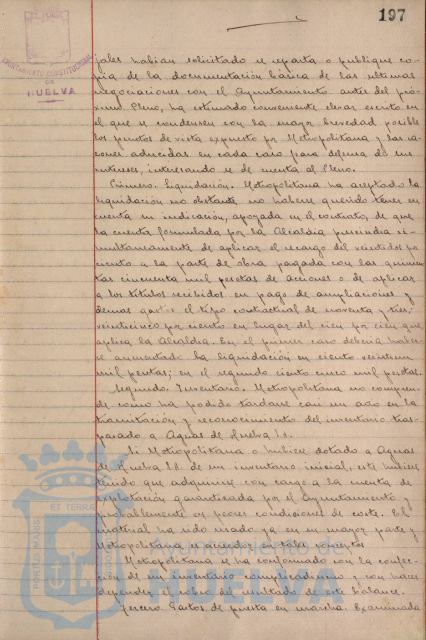 197
AYUNTAMIENTO CONSTITUCIONAL
DE
HUELVA
jales habian solicitado se reparta o publique co-
pia de la documentación básica de las ultimas
negociaciones con el Ayuntamiento antes del pró-
ximo Pleno, ha estimado conveniente elevar escrito en
el que se condensen con la mayor brevedad posible
los puntos de vista expuesto por Metropolitana y las ra-
zones aducidas en cada caso para defensa de sus
intereses, interesando se dé cuenta al Pleno.
Primero. Liquidación. Metropolitana ha aceptado la
liquidación no obstante no haberse querido tener en
cuenta su indicación, apoyada en el contrato, de que
la cuenta formulada por la Alcaldia prescindia si-
multaneamente de aplicar el recargo del veintidos por
ciento a la parte de obra pagada con las quinien-
tas cincuenta mil pesetas de acciones o de aplicar
a los titulos recibidos en pago de ampliaciones y
demas gastos el tipo contractual de noventa y tres,
veinticinco por ciento en lugar del cien por cien que
aplica la Alcaldia. En el primer caso deberia haber-
se aumentado la liquidación en ciento veintiun
mil pesetas; en el segundo ciento cinco mil pesetas.
Segundo. Inventario. Metropolitana no compren-
de como ha podido tardarse casi un año en la
tramitación y reconocimiento del inventario tras-
pasado a Aguas de Huelva S.A.
Si Metropolitana no hubiese dotado a Aguas
de Huelva S.A. de un inventario inicial, esta hubiese
tenido que adquirirse con cargo a la cuenta de
explotación garantizada por el Ayuntamiento y
probablemente en peores condiciones de coste. El
material ha sido usado ya en su mayor parte y
Metropolitana se acuerda en tales momentos
Metropolitana se ha conformado con la confec-
ción de un inventario complicadisimo y con hacer
depender el cobro del resultado de este balance.
Tercero. Gastos de puesta en marcha. Examinada
Ayuntamiento de
HUELVA
PORTUS MARIS
ET TERRAE